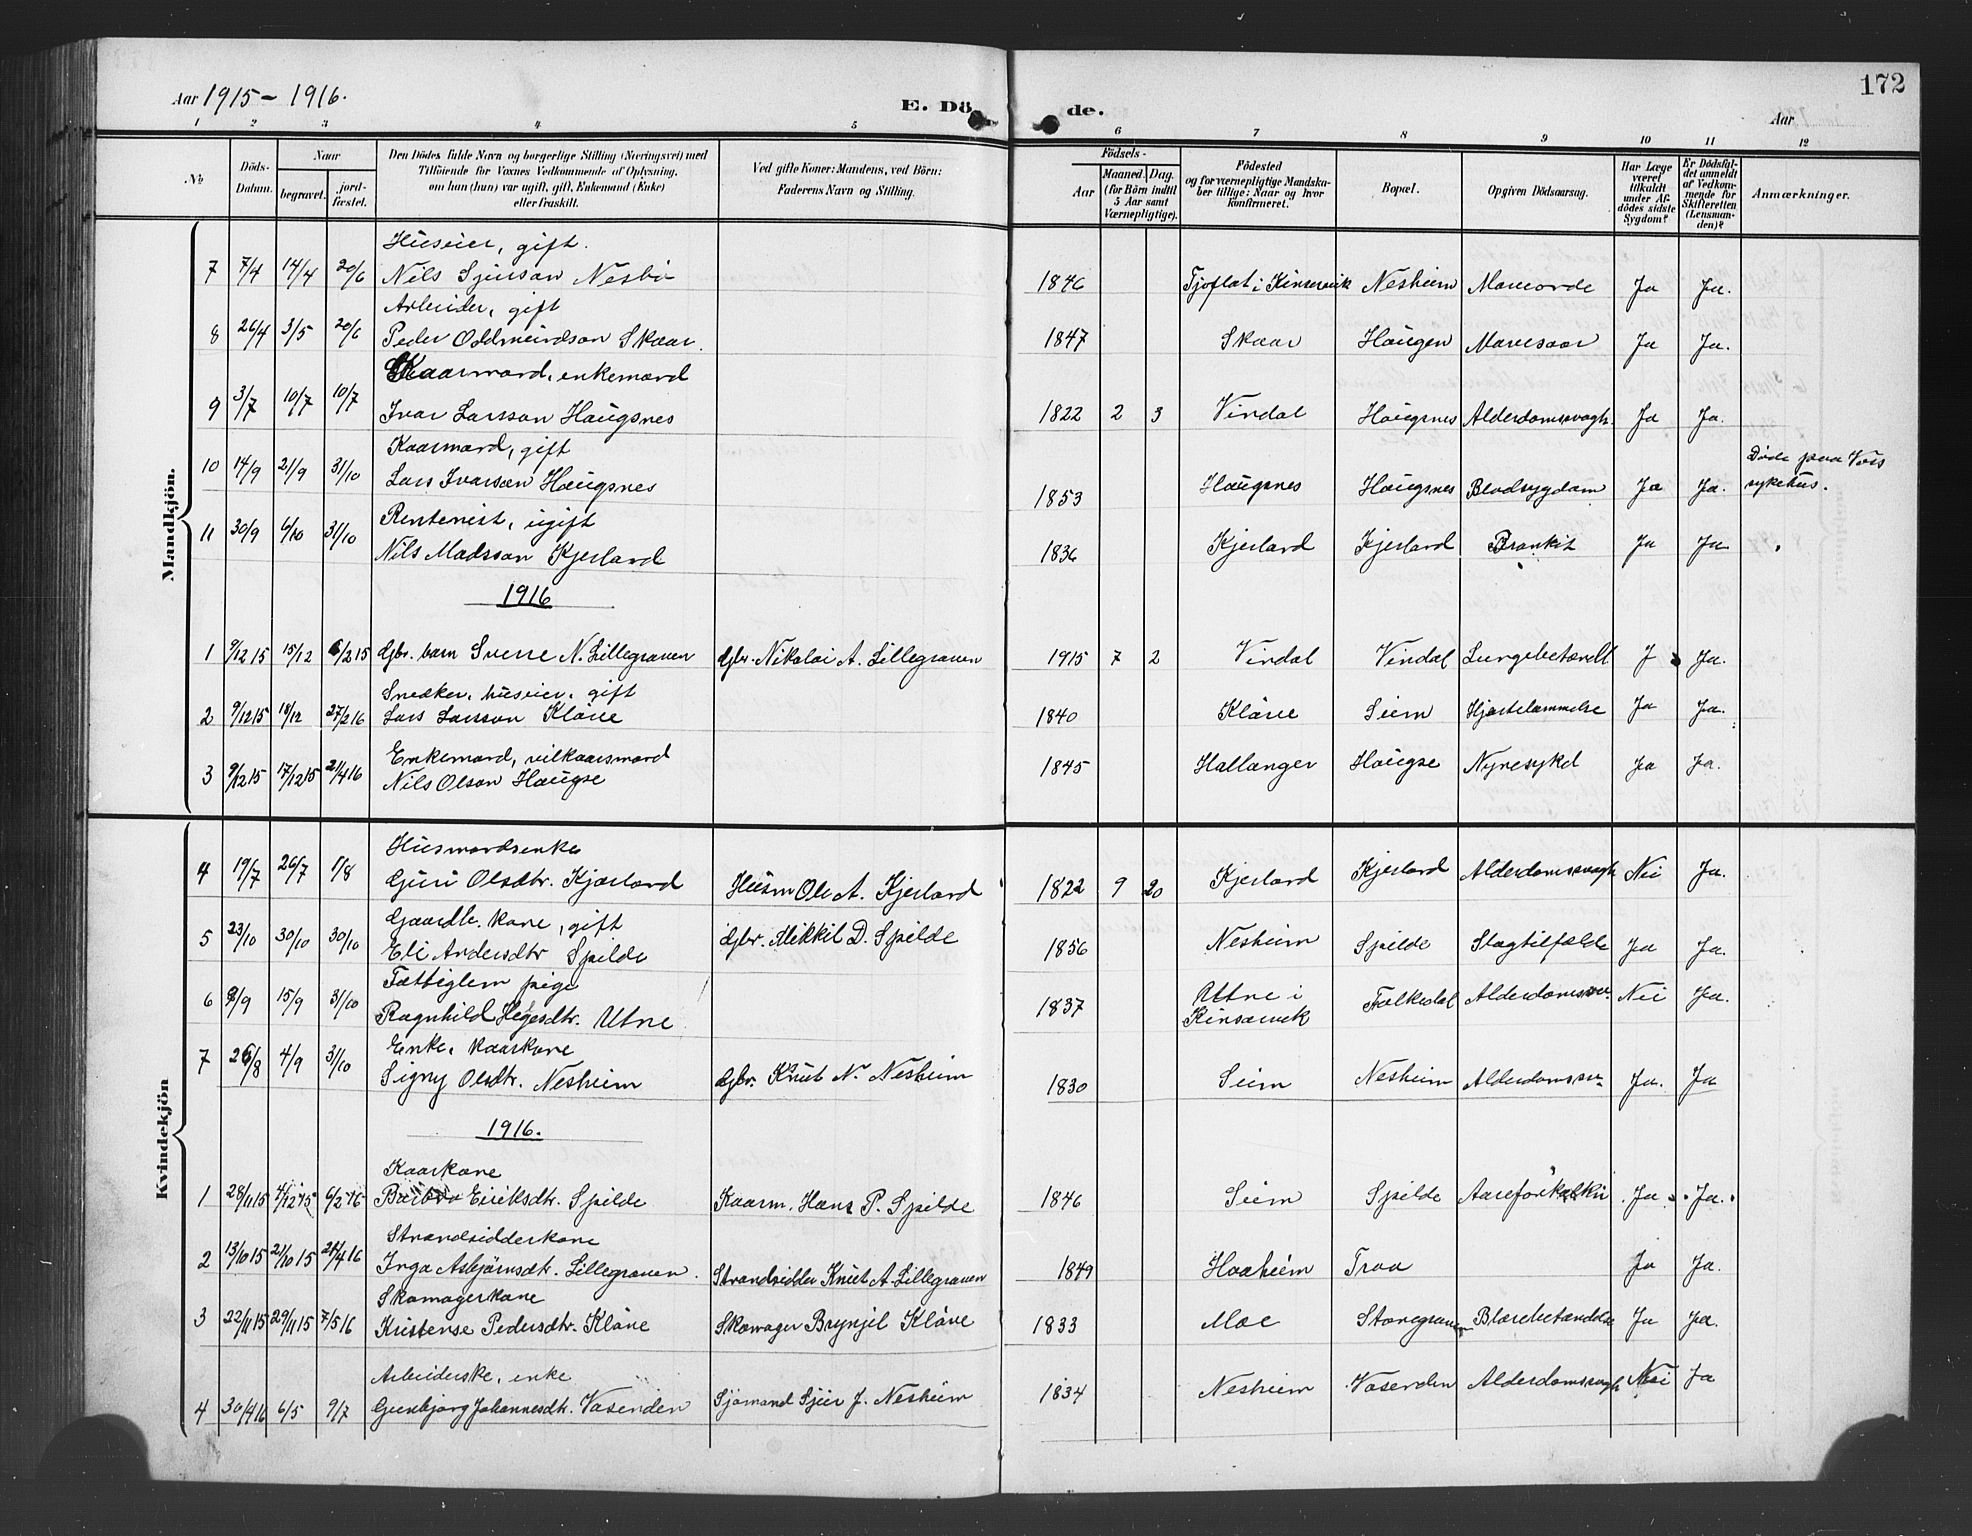 172
Aar 1915 - 1916.
E. Dö de.
Aar
1 2 3 4 5 6 7 8 9 10 11 12
No
Döds-Datum.
Naar
begravet.
jord-fæstet.
Den Dödes fulde Navn og borgerlige Stilling (Næringsvei) med
Tilföiende för Voxnes Vedkommende af Oplysning,
om han (hun) var ugift, gift, Enkemand (Enke)
eller fraskilt.
Ved gifte Koner: Mandens, ved Börn:
Faderens Navn og Stilling.
Födsels-
Aar
Maaned. Dag.
(for Börn indtil
5 Aar samt
Værnepligtige).
Födested
og for værnepligtige Mandska-
ber tillige: Naar og hvor
konfirmeret.
Bopæl.
Opgiven Dödsaarsag.
Har Læge
været
tilkaldt
under Af-
dödes sidste
Sygdom?
Er Dödsfal-
det anmeldt
af Vedkom-
mende for
Skifteretten
(Lensman-
den)?
Anmærkninger.
Mandkjön.
Huseier, gift.
7 7/4 14/4 20/6 Nils Sjursson Nesbö 1846 Tjoflat i Kinservik Nesheim Ja Ja.
Arbeider, gift
8 26/4 3/5 20/6 Peder Oddmundson Skaar. 1847 Skaar Haugen Ja Ja.
Kaarmand, enkemand
9 3/7 10/7 10/7 Ivar Larsson Haugsnes 1822 2 3 Vindal Haugsnes Alderdomssvagh. Ja Ja.
Kaarmand, gift
10 14/9 21/9 31/10 Lars Ivarson Haugsnes 1853 Haugsnes Haugsnes Blodsygdom Ja Ja. Döde paa Voss
sykehus.
Rentenist, ugift
11 30/9 6/10 31/10 Nils Madsson Kjerland 1836 Kjerland Kjerland Bronkit Ja Ja
1916
1 9/12 15 15/12 6/2 15 Gbr. barn Sverre N. Lillegraven Gbr. Nikolai A. Lillegraven 1915 7 2 Vindal Vindal Lungebetændt J Ja.
Snedker, huseier, gift
2 9/12 15 18/12 27/2 16 Lars Larsson Kläve 1840 Kläve Seim Hjertelammelse Ja Ja.
Enkemand, vilkaarsmand
3 9/12 15 17/12 15 24/4 16 Nils Olson Haugse 1845 Hallanger Haugse Nyresykd Ja Ja.
Kvindekjön
Husmandsenke
4 19/7 26/7 1/8 Guri Olsdtr. Kjærland Husm Ole A. Kjerland 1822 9 20 Kjerland Kjerland Alderdomssvagh Nei Ja.
Gaardbr. kone, gift
5 23/10 30/10 30/10 Eli Andersdtr Spilde Gbr. Mikkil D. Spilde 1856 Nesheim Spilde Slagtilfælde Ja Ja.
Fattiglem pige
6 9/9 15/9 31/10 Ragnhild Utne 1837 Utne i
Kinsarvik Folkedal Alderdomssv. Nei Ja.
Enke, kaarkone
7 26/8 4/9 31/10 Signy Olsdtr. Nesheim Gbr. Knut N. Nesheim 1830 Seim Nesheim Alderdomssv. Ja. Ja
1916.
Kaarkone
1 28/11 15 4/12 15 6/2 16 Barbro Eiriksdtr. Spilde Kaarm. Hans P. Spilde 1846 Seim Spilde Aareforkalkn Ja Ja.
Strandsidderkone
2 13/10 15 21/10 15 24/4 16 Inga Asbjørnsdtr. Lillegraven. Strandsidder Knut A. Lillegraven 1849 Haaheim Traa Ja Ja.
Skomagerkone
3 22/11 15 29/11 15 7/5 16 Kristense Pedersdtr. Kläve Skomager Brynjel Kläve 1833 Moe Storegraven Blærebetændelse Ja Ja.
Arbeiderske, enke
4 30/4 16 6/5 9/7 Gunbjörg Johannesdtr. Vasenden Sjömand Sjur J. Nesheim 1834 Nesheim Vasenden Alderdomssvagh Nei Ja